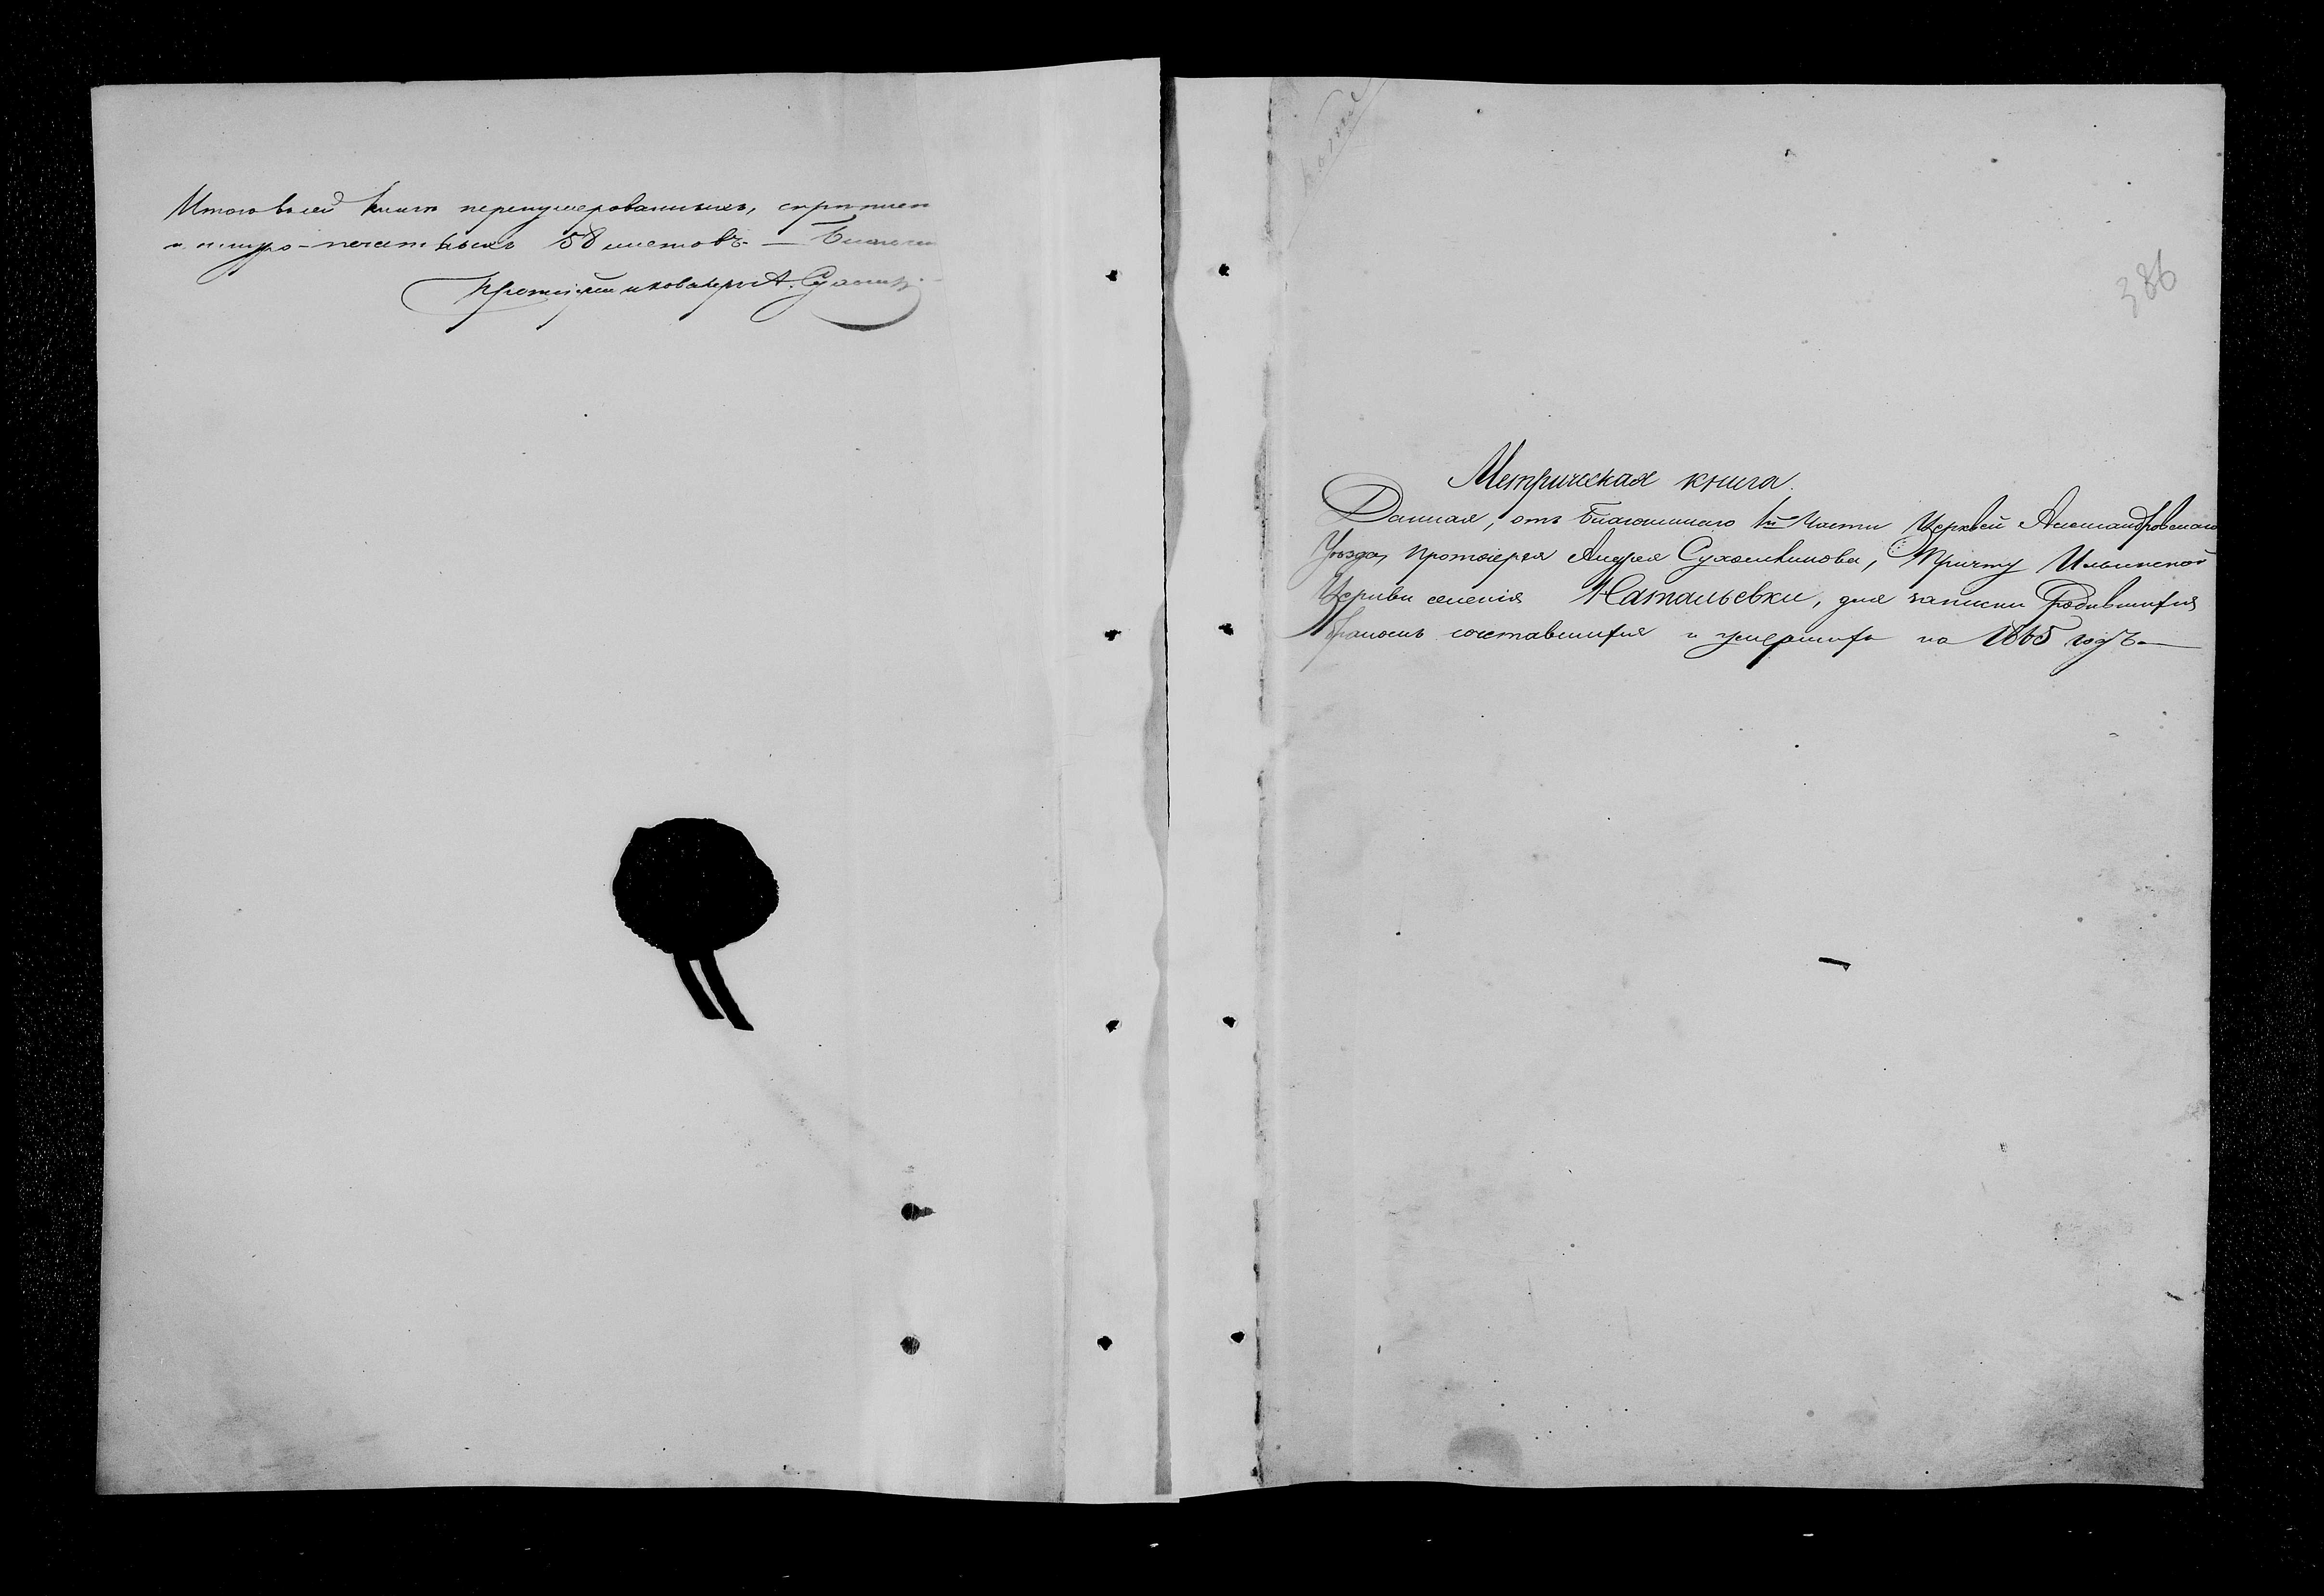 Итого в сей книге перенумерованныхъ, скреплен
и шнуро-печатныхъ 58 листовъ — Благочин
Протоіерей и кавалеръ А. Сухомл
копія
386
Метрическая книга.
Данная, отъ Благочиннаго 1й части Церквей Александровскаго
Уѣзда, Протоіерея Андрея Сухомлинова, Причту Ильинской
Церкви селенія Натальевки, для записки Родившихся
бракомъ сочетавшихся и умершихъ на 1865 годъ.—